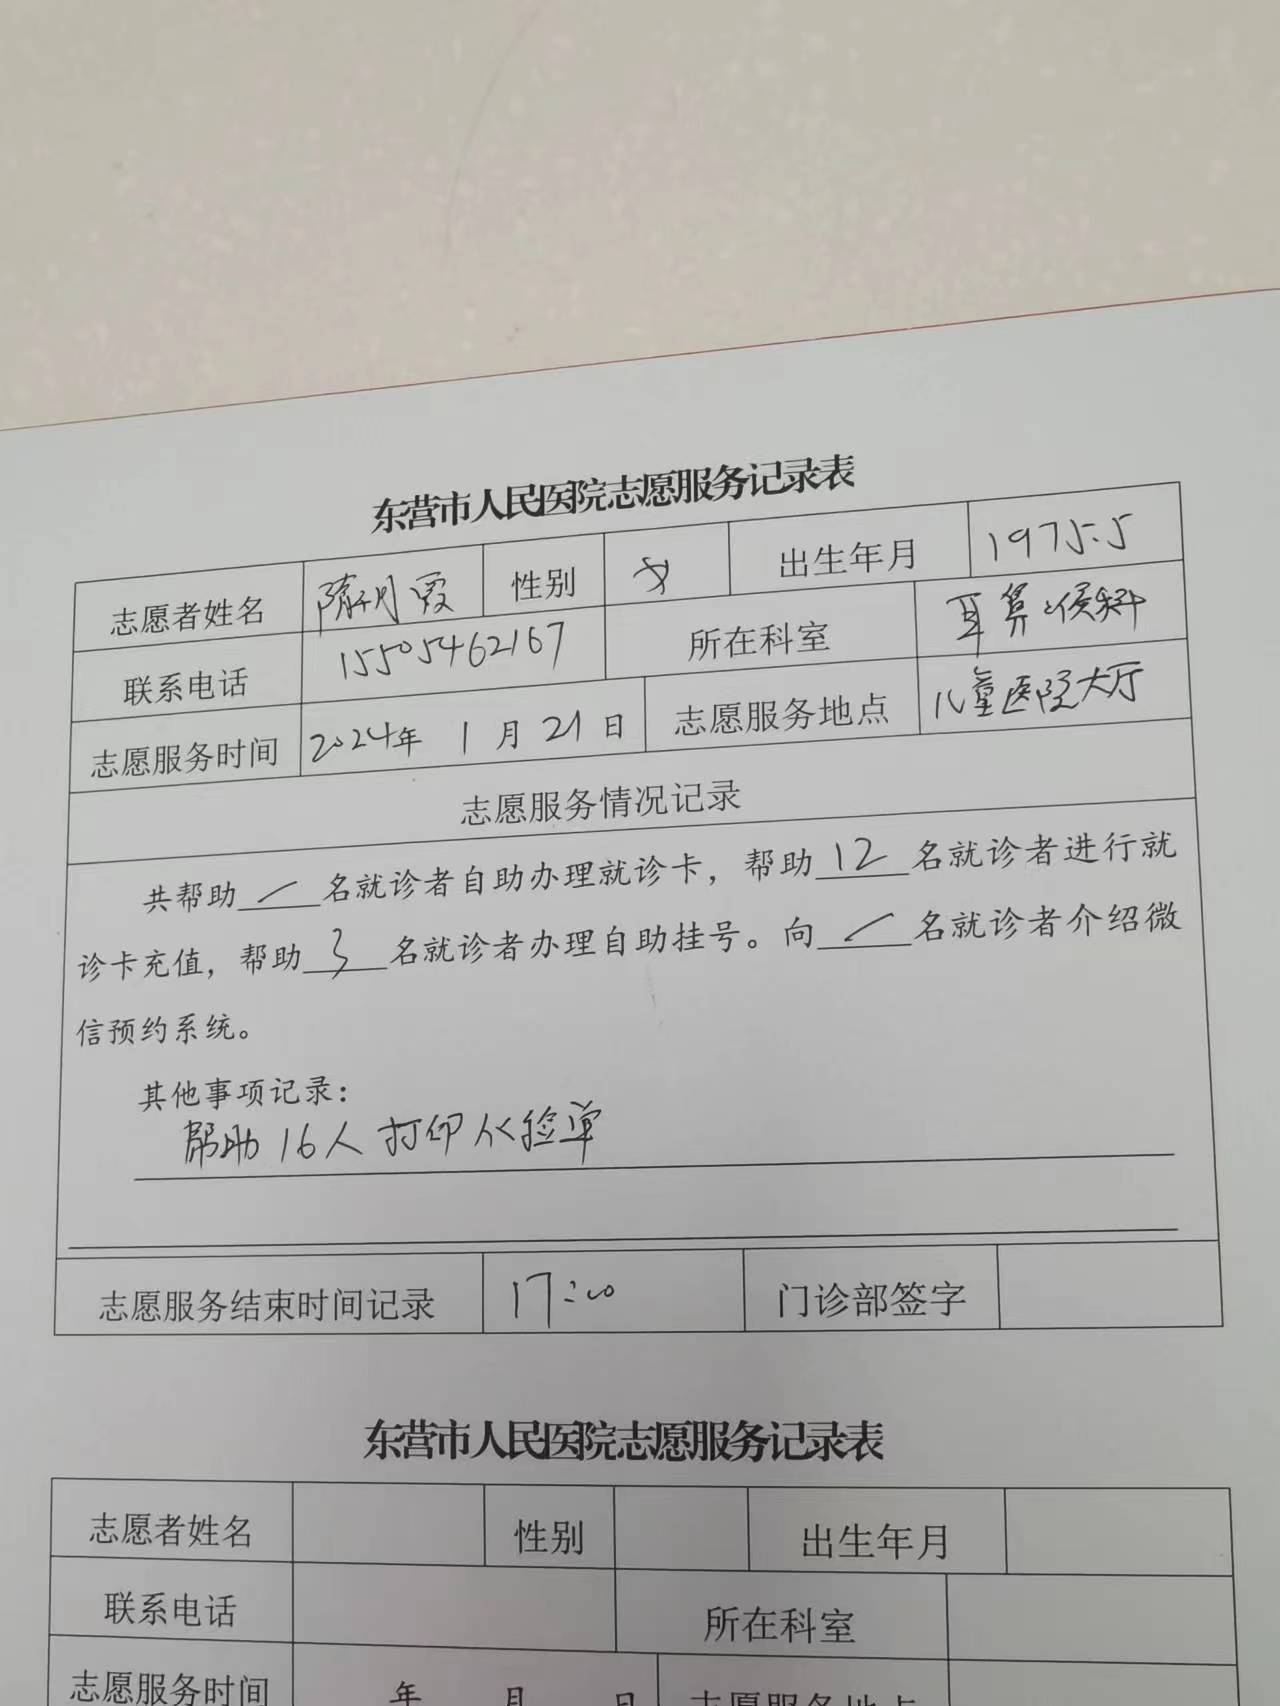 东营市人民医院志愿服务记录表
志愿者姓名 隋月霞 性别 女 出生年月 1975.5
联系电话 15505462167 所在科室 耳鼻喉科
志愿服务时间 2024年 1月 21日 志愿服务地点 儿童医院大厅
志愿服务情况记录
共帮助 / 名就诊者自助办理就诊卡，帮助 12 名就诊者进行就
诊卡充值，帮助 3 名就诊者办理自助挂号。向 / 名就诊者介绍微
信预约系统。
其他事项记录：
帮助16人打印化验单
志愿服务结束时间记录 17:00 门诊部签字
东营市人民医院志愿服务记录表
志愿者姓名 性别 出生年月
联系电话 所在科室
志愿服务时间 年 月 日 志愿服务地点